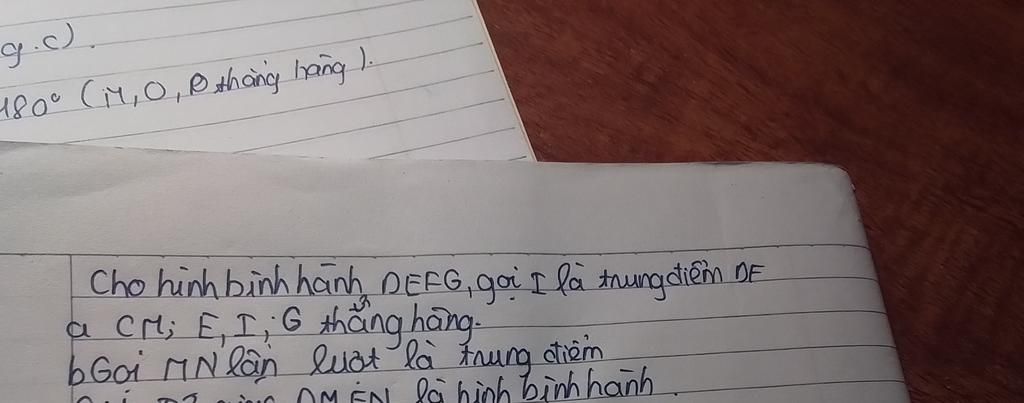 g.c).
180° (M, O, P thẳng hàng).
Cho hình bình hành DEFG, gọi I là trung điểm DF
a CM; E, I, G thẳng hàng.
b Gọi MN lần lượt là trung điểm
DMEN là hình bình hành.